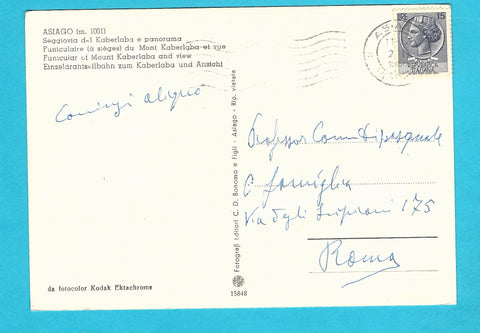 ASIAGO (m. 1001)
Seggiovia del Kaberlaba e panorama
Funiculaire (à sièges) du Mont Kaberlaba et vue
Funicular of Mount Kaberlaba and view
Einzelärantseilbahn zum Kaberlaba und Ansicht
15
Professor
e famiglia
Via degli 175
Roma
Fotografi Editori C. D. Bonomo e Figli - Asiago - Rip. vietata
da fotocolor Kodak Ektachrome
15848